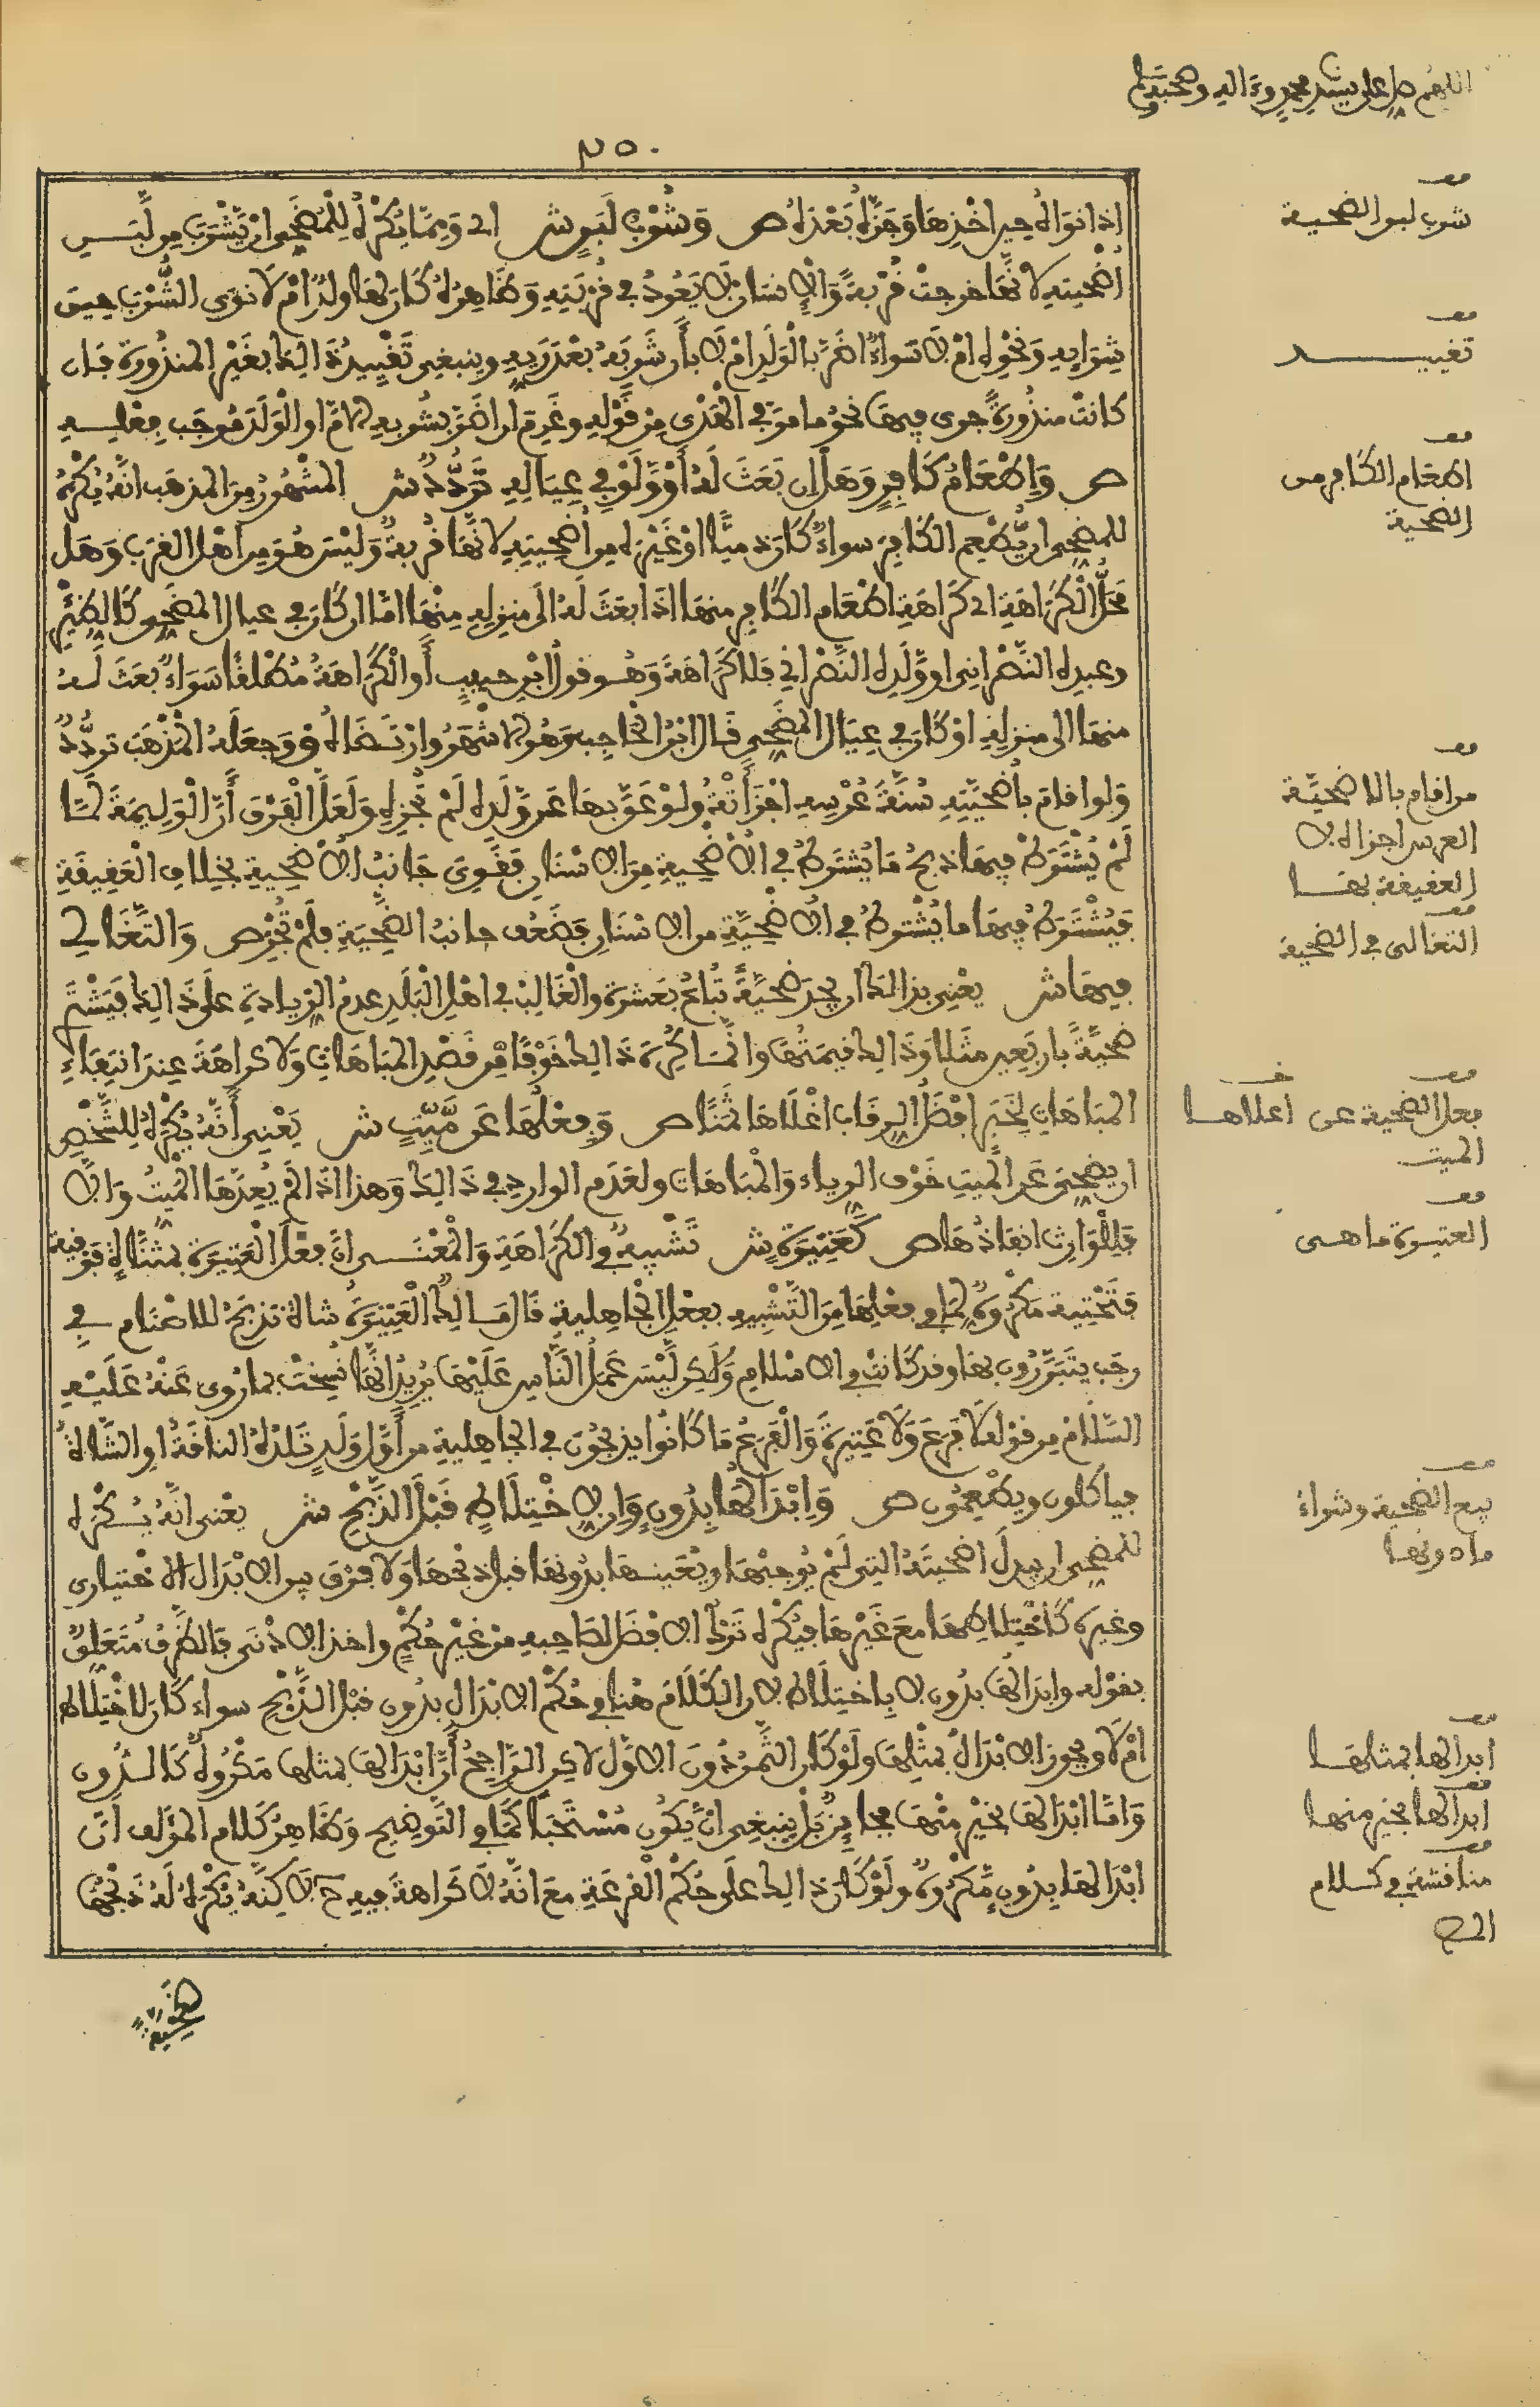 اللهم صل على سيدنا محمد وءاله وصحبه وسلم
٢٥٠
اذا نواه حين اخذها وجزه بعده ص وشرب لبن ش اي ومما يكره للمضحي ان يشرب من لبن
اضحيته لانها خرجت قربة والانسان لا يعود في قربته وظاهره كان لها ولد ام لا نوى الشرب حين
شرايه ونحوه ام لا سواء اضر بالولد ام لا بأن شربه بعد ريه وينبغي تقييد ذالك بغير المنذورة فان
كانت منذورة جرى فيها نحو ما مر في الهدي من قوله وغرم ان اضر بشربه الام او الولد موجب فعله
ص وإطعام كافر وهل ان بعث له أو ولو في عياله تردد ش المشهور من المذهب انه يكره
للمضحي ان يطعم الكافر سواء كان ذميا او غيره من اضحيته لانها قربة وليس هو من اهل القرب وهل
محل الكراهة اي كراهة اطعام الكافر منها اذا بعث له الى منزله منها اما ان كان في عيال المضحي كالظئر
وعبده النصراني او ولده النصراني فلا كراهة وهو قول ابن حبيب أو الكراهة مطلقا سواء بعث له
منها الى منزله او كان في عيال المضحي قال ابن الحاجب وهو الاشهر وارتضاه ق وجعله المذهب تردد
ولو اقام بأضحيته سنة عرسه اجزأته ولو عق بها عن ولده لم تجزه ولعل الفرق أن الوليمة لما
لم يشترط فيها ذبح ما يشترط في الاضحية من الاسنان فقوي جانب الاضحية بخلاف العقيقة
فيشترط فيها ما يشترط في الاضحية من الاسنان فضعف جانب الضحية فلم تجز ص والتغالي
فيها ش يعني بذالك ان يجد ضحية تباع بعشرة والغالب في اهل البلد عدم الزيادة على ذالك فيشتري
ضحية باربعين مثلا وذالك قيمتها وانما كره ذالك خوفا من قصد المباهات ولا كراهة عند انتفاء
المباهات لخبر افضل الرقاب اغلاها ثمنا ص وفعلها عن ميت ش يعني أنه يكره للشخص
ان يضحي عن الميت خوف الرياء والمباهات ولعدم الوارد في ذالك وهذا اذا لم يعدها الميت والا
فللوارث انفاذها ص كعتيرة ش تشبيه في الكراهة والمعنى ان فعل العتيرة بمثناة فوقية
فتحتية مكروه لما في فعلها من التشبيه بفعل الجاهلية قال مالك العتيرة شاة تذبح للاصنام في
رجب يتبررون بها وقد كانت في الاسلام ولكن ليس عمل الناس عليها يريد انها نسخت بما روي عنه عليه
السلام من قوله لا فرع ولا عتيرة والفرع ما كانوا يذبحون في الجاهلية من أول ولد تلده الناقة او الشاة
فياكلون ويطعمون ص وابدالها بدون وان لاختلاط قبل الذبح ش يعني انه يكره
للمضحي ان يبدل اضحيته التي لم يوجبها ويعينها بدونها قبل ذبحها ولا فرق بين الابدال الاختياري
وغيره كاختلاطها مع غيرها فيكره ترك الافضل لصاحبه من غير حكم واخذ الادنى فالظرف متعلق
بقوله وابدالها بدون لا باختلاط لان الكلام هنا في حكم الابدال بدون قبل الذبح سواء كان لاختلاط
ام لا ويجوز الابدال بمثلها ولو كان الثمن دون الاول لاكن الراجح أن ابدالها بمثلها مكروه كالدون
واما ابدالها بخير منها فجائز بل ينبغي ان يكون مستحبا كما في التوضيح وظاهر كلام المؤلف ان
ابدالها بدون مكروه ولو كان ذالك على حكم القرعة مع انه لا كراهة فيه ح لاكنه يكره له ذبحها
ضحية
شرب لبن الضحية
تقييد
اطعام الكافر من
الضحية
من اقام بالاضحية
العرس اجزاه لا
العقيقة بها
التغالي في الضحية
فعل الضحية عن
الميت
اعلاها
العتيرة ما هي
بيع الضحية وشراء
ما دونها
ابدالها بمثلها
ابدالها بخير منها
مناقشة في كلام